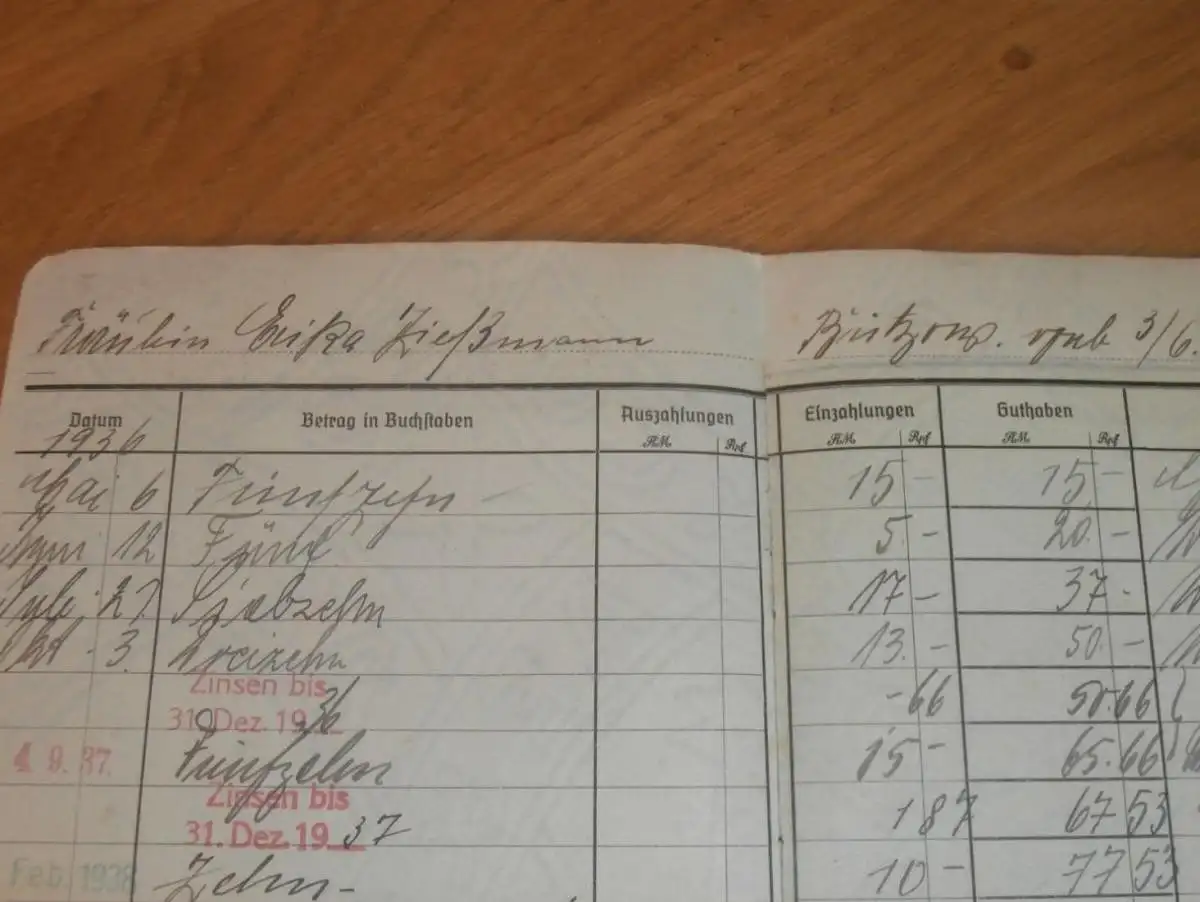 Fräulein Erika Zießmann Bützow. geb 3/6.
Datum Betrag in Buchstaben Auszahlungen Einzahlungen Guthaben
RM Rpf RM Rpf RM Rpf
1936
Mai 6 Fünfzehn – 15 – 15 –
12 Fünf 5. – 20. –
27 Siebzehn 17 – 37 -
Okt - 3. Dreizehn 13. – 50. –
Zinsen bis
31. Dez. 1936 - 66 50.66
4. 9. 37. Fünfzehn 15 – 65.66
Zinsen bis
31. Dez. 19 37 1 87 67 53
Feb. 1938 Zehn - 10 – 77 53